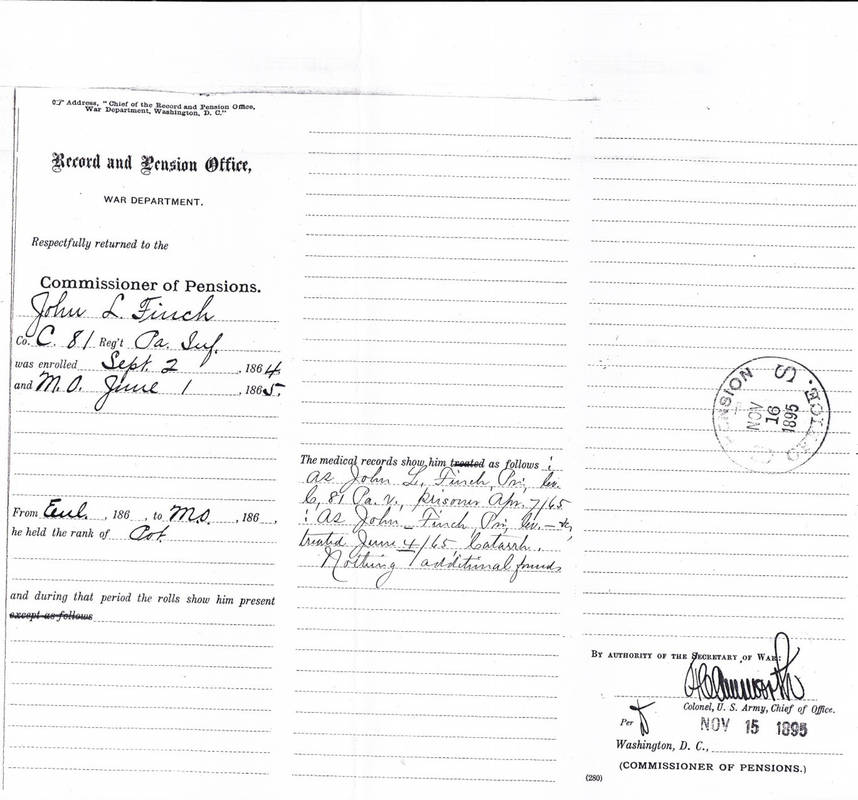 ☞ Address, "Chief of the Record and Pension Office,
War Department, Washington, D. C."
Record and Pension Office,
WAR DEPARTMENT.
Respectfully returned to the
Commissioner of Pensions.
John L. Finch
Co. C. 81 Reg't Pa. Inf.
was enrolled Sept. 2, 1864
and M.O. June 1, 1865.
From Enl., 186 , to M.O., 186 ,
he held the rank of
and during that period the rolls show him present
except as follows
The medical records show him treated as follows :
As John L. Finch, Pri,
C, 81 Pa. V., prisoner Apr. 7/65
: As John – Finch Pri,
treated June 4/65 Catarrh.
Nothing additional found
PENSION OFFICE.
NOV
16
1895
BY AUTHORITY OF THE SECRETARY OF WAR:
Colonel, U. S. Army, Chief of Office.
Per
NOV 15 1895
Washington, D. C.,
(COMMISSIONER OF PENSIONS.)
(280)